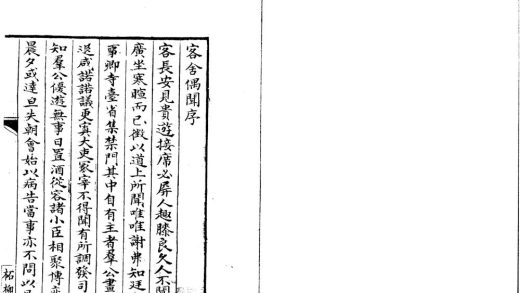 客舍偶聞序
客長安見貴遊接席必屏人趣膝良久人不聞
廣坐寒暄而已徵以道上所聞唯唯謝弗知廷
事卿寺臺省集禁門其中自有主者羣公畫
送咸諾諾議更寘大吏冢宰不得聞有所調發司
知羣公優遊無事日置酒從容諸小臣相聚博
晨夕或達旦失朝會始以病告當事亦不問以
柘柳